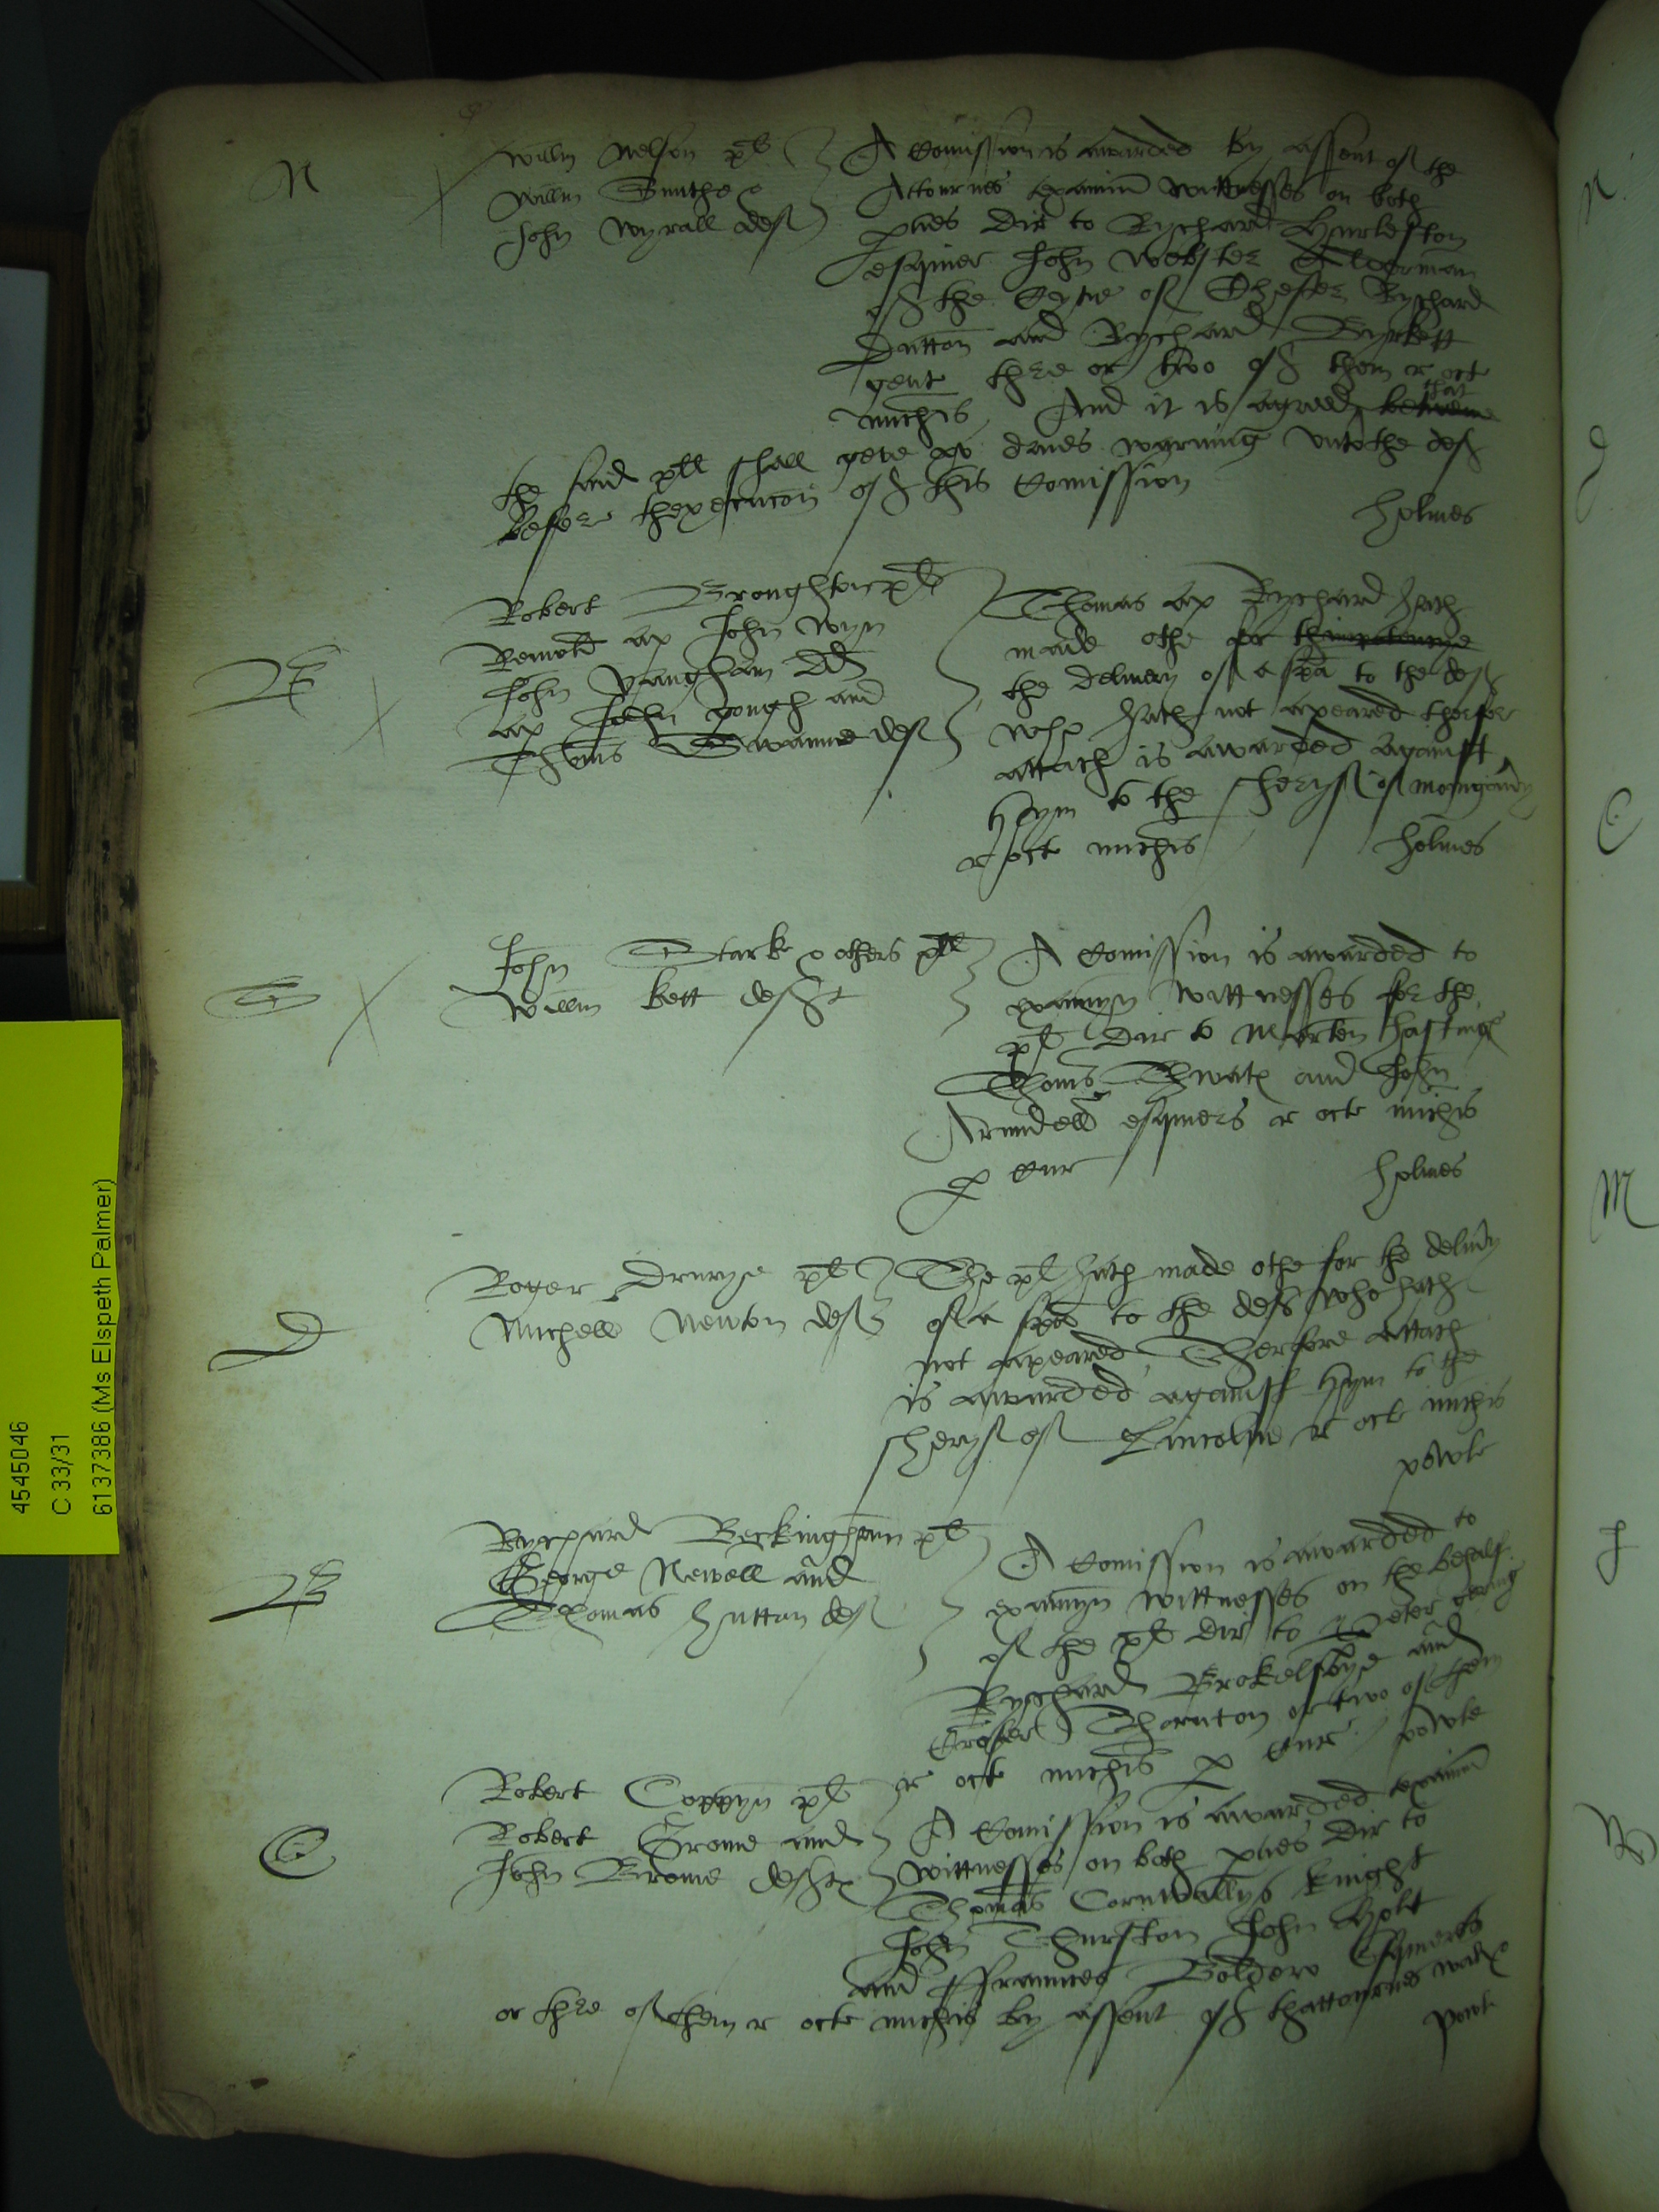 N
Willm Nelson pl
Willm Smithe &
John Wyrall def
A Comission is awarded by assent of the
Attournes examin wittnesses on both
pties Dir to Rychard Hurleston
esquier John Webster Alderman
of the Cytie of Chester Rychard
Dutton and Rychard Byrkett
gent thre or two of them r oct
michis And it is agreed that betwene
the said pltt shall geve xv daies warning unto the def
before thexecucon of this Comission
Holmes
B
Robert Broughton pl
Reinold ap John Wyn
John Vaughan DD
ap John gough and
Thoms Swanne def
Thomas ap Rychard hath
made othe for
the delivery of a spa to the def
who hath not apeared therfor
attach is awarded against
hym to the Sheryf of
r oct michis
Holmes
S
John Stark & others pltt
Willm kett deft
A Comission is awarded to
examyn wittnesses for the
pl Dir to Marten hastings
Thoms Thwats and John
Arundell esquiers r oct michis
p Cur
Holmes
D
Roger Drurye pl
Michell Newton def
The pl hath made othe for the delivy
of a spa to the def who hath
not apeared Therfore attach
is awarded against hym to the
sheryf of Lincolne r oct michis
powle
B
Rychard Beckingham pl
George Newell and
Thomas Hutton def
A Comission is awarded to
examyn wittnesses on the behalf
of the pl dir to Peter
Rychard Brokelsbye and
Thornton or two of them
r oct michis p Cur powle
C
Robert Coppyn pl
Robert Grome and
John Brome defts
A Comission is awarded texamin
wittnesses on both pties Dir to
Thomas Cornwallys knight
John Thurston John Holt
and Ffraunces Boldero Esquiers
or thre of them r oct michis by assent of thattournes
powle
4545046
C 33/31
6137386 (Ms Elspeth Palmer)
N
d
C
M
J
B